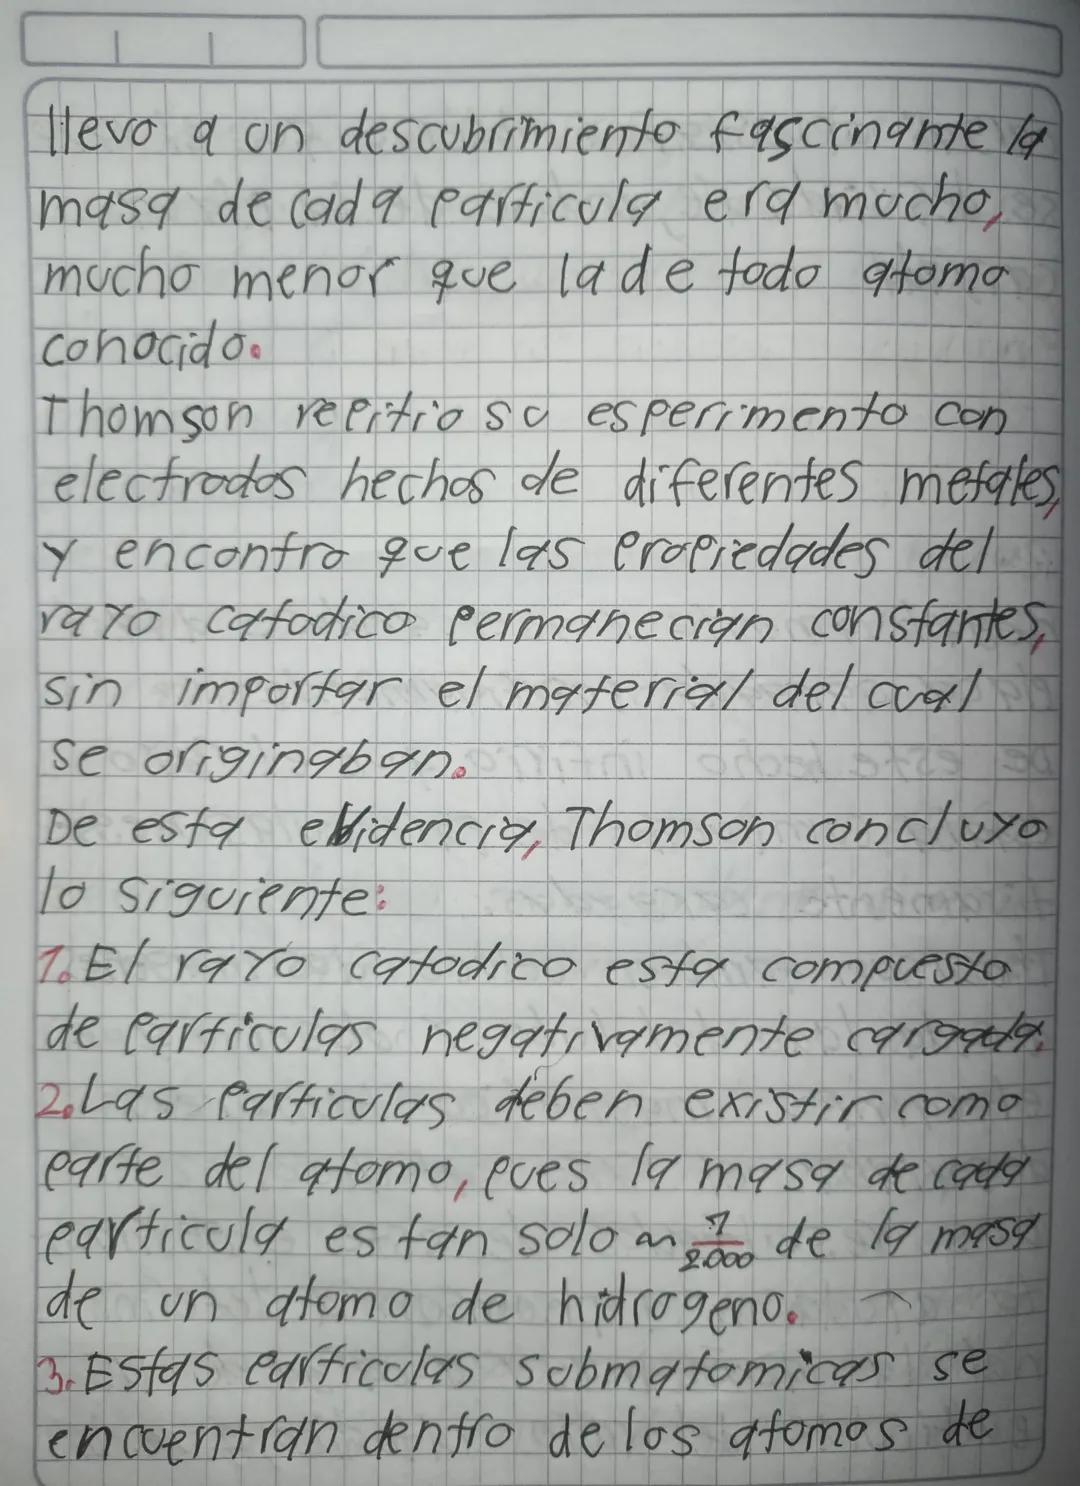 llevo a un descubrimiento fascinante la
masa de cada particula era mucho,
mucho menor que la de todo atomo
conocido.
Thomson repitio su esperimento con
electrodos hechos de diferentes metales,
y encontro que las propiedades del
rayo catodico permanecian constantes,
sin importar el material del cual
se originaban.
De esta evidencia, Thomson concluyo
lo siguiente:
1. El rayo catodico esta compuesto
de particulas negativamente cargada.
2. Las particulas deben existir como
parte del atomo, pues la masa de cada
particula es tan solo ~ 1/2000 de la masa
de un atomo de hidrogeno.
3. Estas particulas submatomicas se
encuentran dentro de los atomos de